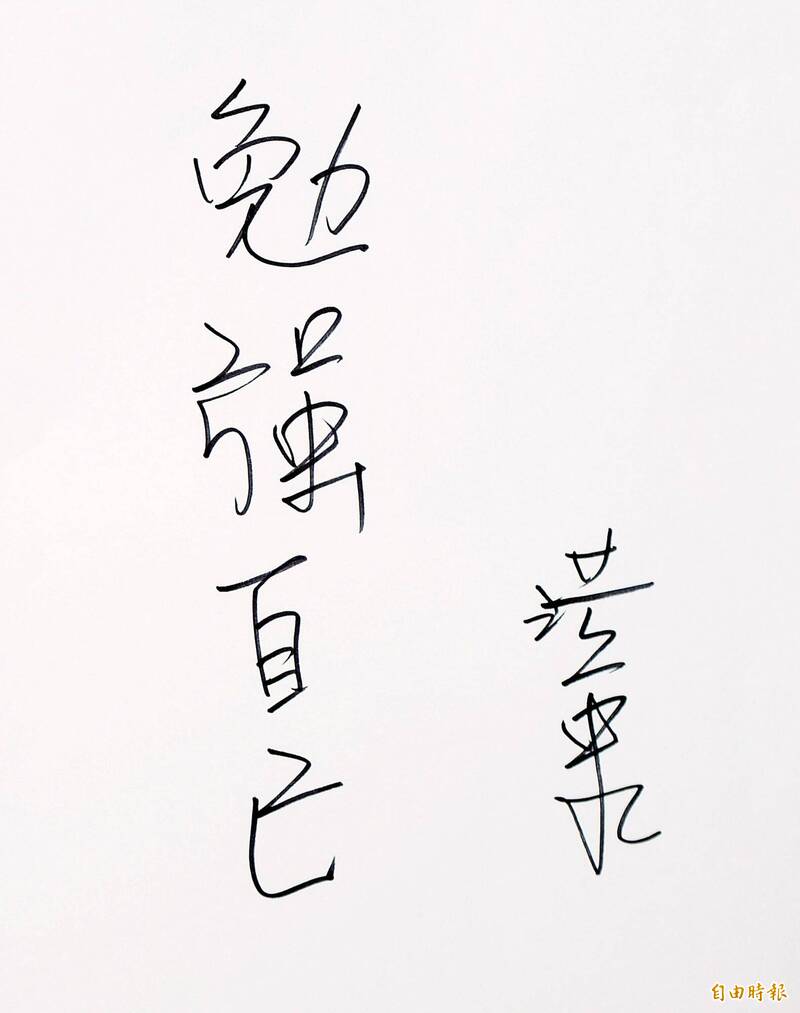 勉強自己
自由時報